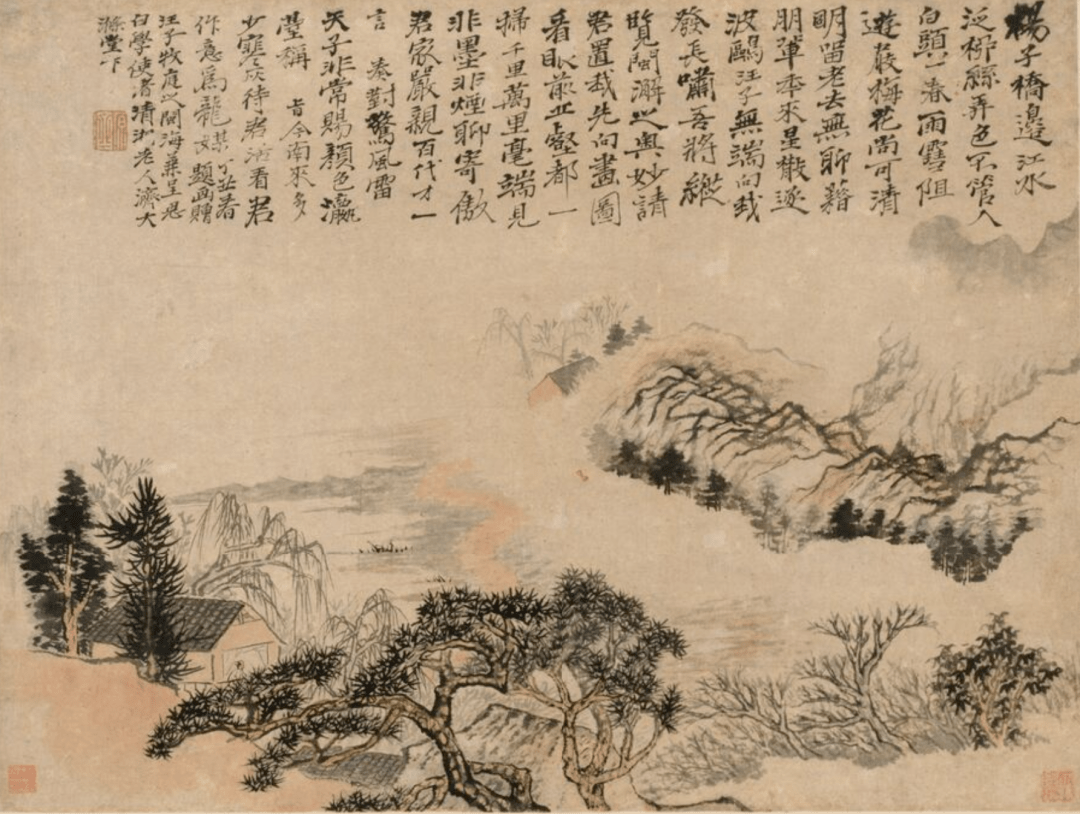 楊子橋邊江水
泛柳絲弄色不管人
白頭一春雨雪阻
遊最梅花尚可清
明留老去無聊藉
朋輩本來星散逐
波鷗汪子無端向我
發長嘯吾將縱
覽閩澥之奧妙請
君置我先向畫圖
看眼前丘壑都一
掃千里萬里毫端見
非墨非煙聊寄傲
君家嚴親百代才一
言奏對驚風雷
天子非常賜顏色瀛
臺稱旨今南來多
少寒灰待君活看君
作意為龍媒丁丑春題画贈
汪子牧庭之閩海兼呈思
白學使者清湘老人濟大
滌堂下